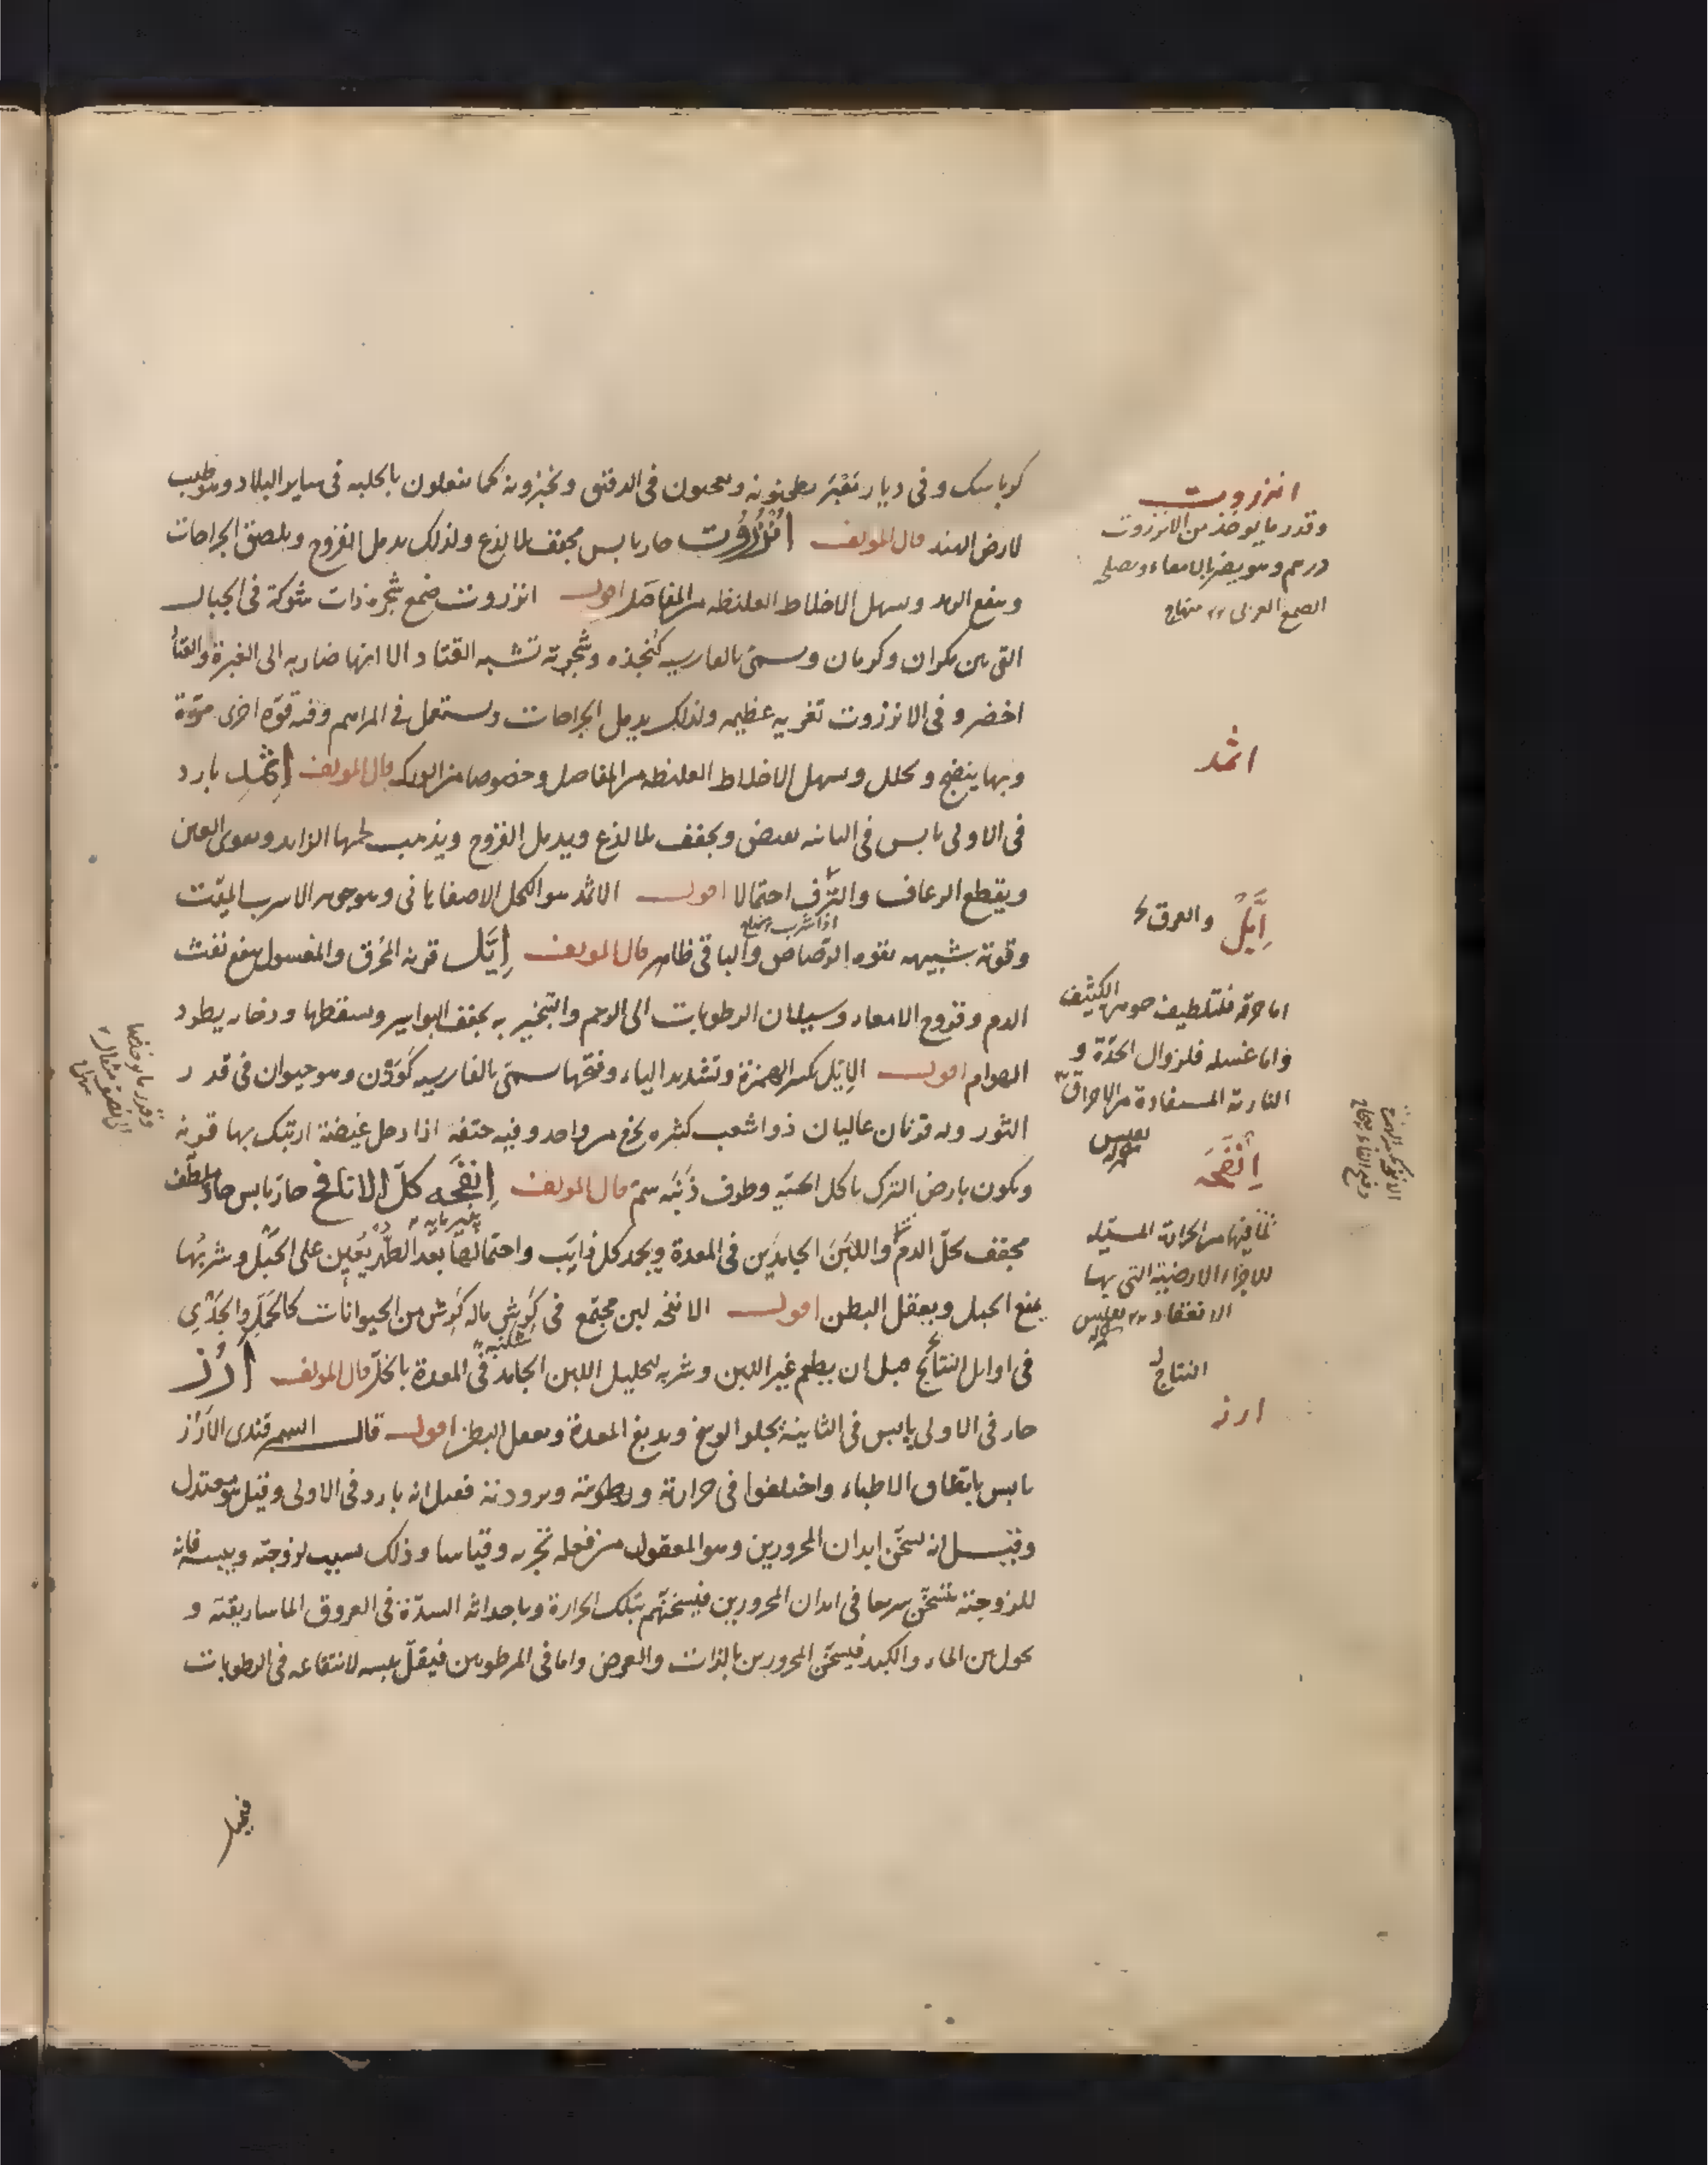 وفى ديار يطحنونه ويعجنون فى الدقيق ويخبزونه كما يفعلون بالحلبه فى ساير البلاد وهو طيب
لارض الهند قال المولف انزروت حار يابس مجفف بلا لذع ولذلك يدمل القروح ويلصق الجراحات
وينفع الرمد ويسهل الاخلاط الغليظه من المفاصل اقول انزروت صمغ شجرة ذات شوكة فى الجبال
التى بين مكران وكرمان ويسمى بالفارسيه كنجذه وشجرته تشبه القتاد الا انها ضاربه الى الغبرة والقتاد
اخضر و فى الانزروت تغريه عظيمه ولذلك يدمل الجراحات ويستعمل فى المراهم وفيه قوة اخرى مرّة
وبها ينضج ويحلل ويسهل الاخلاط الغليظه من المفاصل وخصوصا من الورك قال المولف إثمد بارد
فى الاولى يابس فى الثانيه يقبض ويجفف بلا لذع ويدمل القروح ويذهب لحمها الزايد ويقوى العين
ويقطع الرعاف والنزف احتمالا اقول الاثمد هو الكحل الاصفهانى وهو جوهر الاسرب الميّت
وقوته شبيهه بقوه الرّصاص والباقى ظاهر قال المولف إيَّل قرنه المحُرق والمغسول ينفع نفث
الدم وقروح الامعاء وسيلان الرطوبات الى الرحم والتبخير به يجفف البواسير ويسقطها ودخانه يطرد
الهوام اقول الإيّل بكسر الهمزة وتشديد الياء وفتحها يسمى بالفارسيه كَوَزْن وهو حيوان فى قدر
الثور وله قرنان عاليان ذوا شعب كثيره يخرج من واحد وفيه حتفه اذا دخل غيضة ارتبك بها قرنه
ويكون بارض الترك ياكل الحيّه وطرف ذَنَبه سمّ قال المولف إنفَحه كلّ الانافح حارّ يابس حادّ ملطّف
مجفف يحلّ الدم واللبَن الجامدَين فى المعدة ويجمد كل ذايب واحتمالها بعد الطُهر يُعين على الحَبْل وشربُها
يمنع الحبل ويعقل البطن اقول الانفحه لبن مجتمع فى كَرِش ماله كَرِش من الحيوانات كالحَمَل والجَدْي
فى اوايل النتاج قبل ان يطعم غير اللبن وشربه لتحليل اللبن الجامد فى المعدة بالخلّ قال المولف أرُز
حار فى الاولى يابس فى الثانية يجلو الوسخ ويدبغ المعدة ويعقل البطن اقول قال السمرقندى الأرُز
يابس باتفاق الاطباء واختلفوا فى حرارته ورطوبته وبرودته فقيل انه بارد فى الاولى وقيل هو معتدل
وقيل انه يسخّن ابدان المحرورين وهو المعقول من فعله تجربه وقياسا وذلك بسبب لزوجته ويبسه فانه
للزوجته يتسخّن سريعا فى ابدان المحرورين فيسخنّهم بتلك الحرارة وباحداثه السدّة فى العروق الماساريقيّه و
يحول بين الماء والكبد فيسخّن المحرورين بالذات والعرض واما فى المرطوبين فيقلّ يبسه لانتقاعه فى الرطوبات
اذا شرب
پنير مايه
شكنبه
انزروت
وقدر ما يوخذ من الانزروت
درهم وهو يضر بالامعاء ويصلحه
الصمغ العربى منهاج
اثمد
إيَّل
اما حرقه فلتلطيف جوهره الكثيف
واما غسله فلزوال الحدّة و
الناريّة المستفادة من الاحراق
إنفَحَه
لما فيها من الحرارة المسيّله
للاجزاء الارضيّة التى بها
الانعقاد
النتاج
ارز
وقدر ما يوخذ منها
الى نصف مثقال